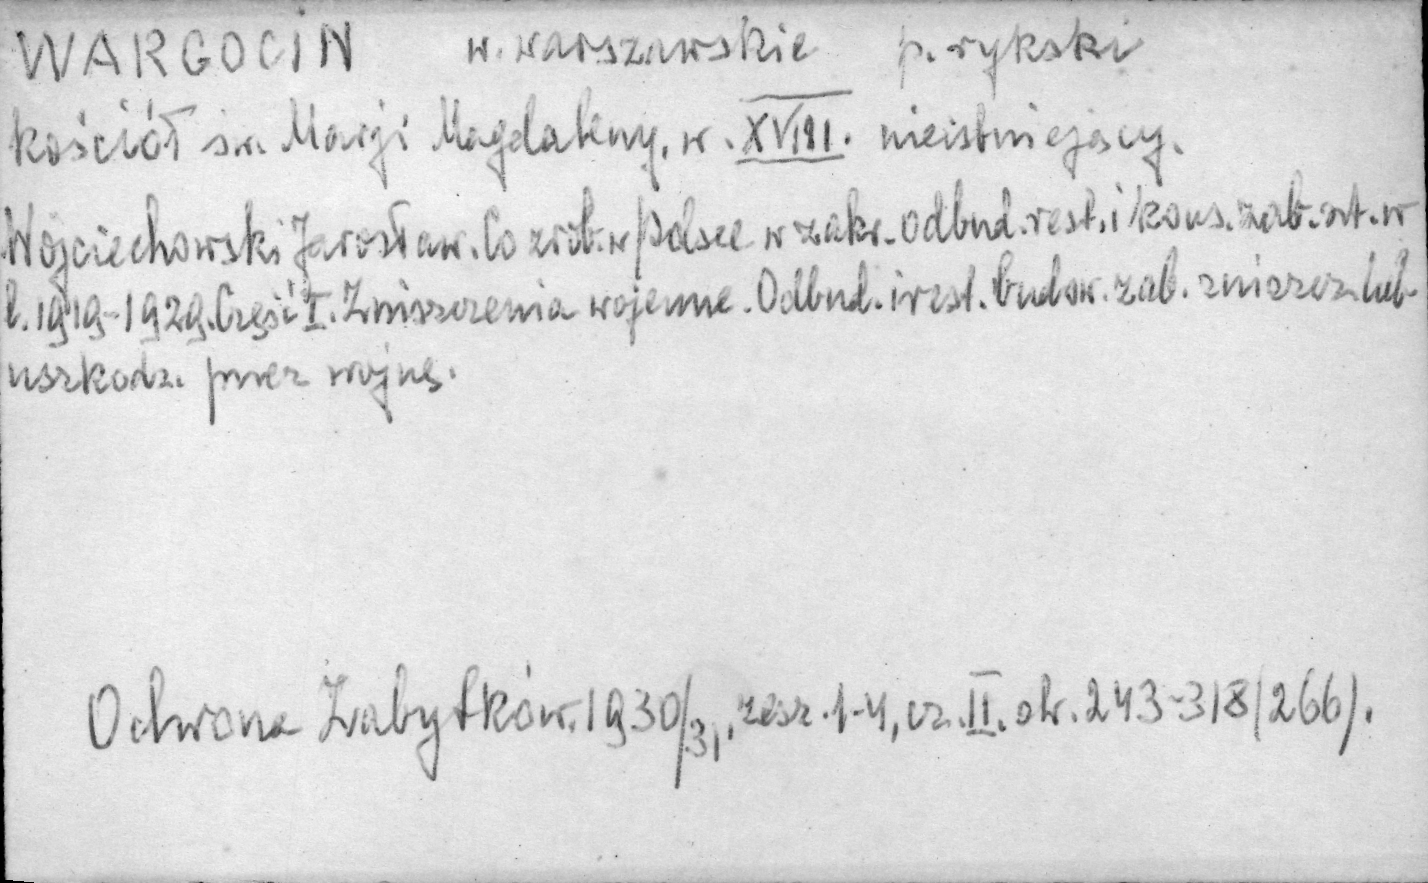 WARGOCIN w. warszawskie p. rykski
kościół św. Marji Magdaleny, w. XVIII. nieistniejący.
Wojciechowski Jarosław. Co zrob. w Polsce w zakr. odbud. rest. i kons. zab. szt. w
l. 1919-1929. Część I. Zniszczenia wojenne. Odbud. i rest. budow. zab. zniszcz. lub
uszkodz. przez wojnę.
Ochrona Zabytków. 1930/31, zesz. 1-4, cz. II. str. 243-318/266).